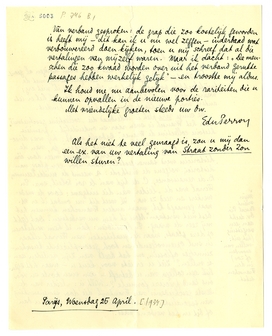 Van verband gesproken: de grap die zoo kostelijk geworden
is heeft mij – "dit kan ik u nu wel zeggen – inderdaad wat
verbouwereerd doen kijken, toen u mij schreef dat al die
vertalingen van mijzelf waren. Maar ik dacht: "die men-
schen die zoo kwaad worden over uit het verband gerukte
passages hebben werkelijk gelijk" – en troostte mij aldus.
Ik houd me nu aanbevolen voor de rariteiten die u
kunnen opvallen in de nieuwe portie.
Met vriendelijke groeten steeds uw dw.
EduPerron
Als het niet te veel gevraagd is, zou u mij dan
een ex. van uw vertaling van Straat zonder Zon
willen sturen?
Parijs, Woensdag 25 April. (1934)